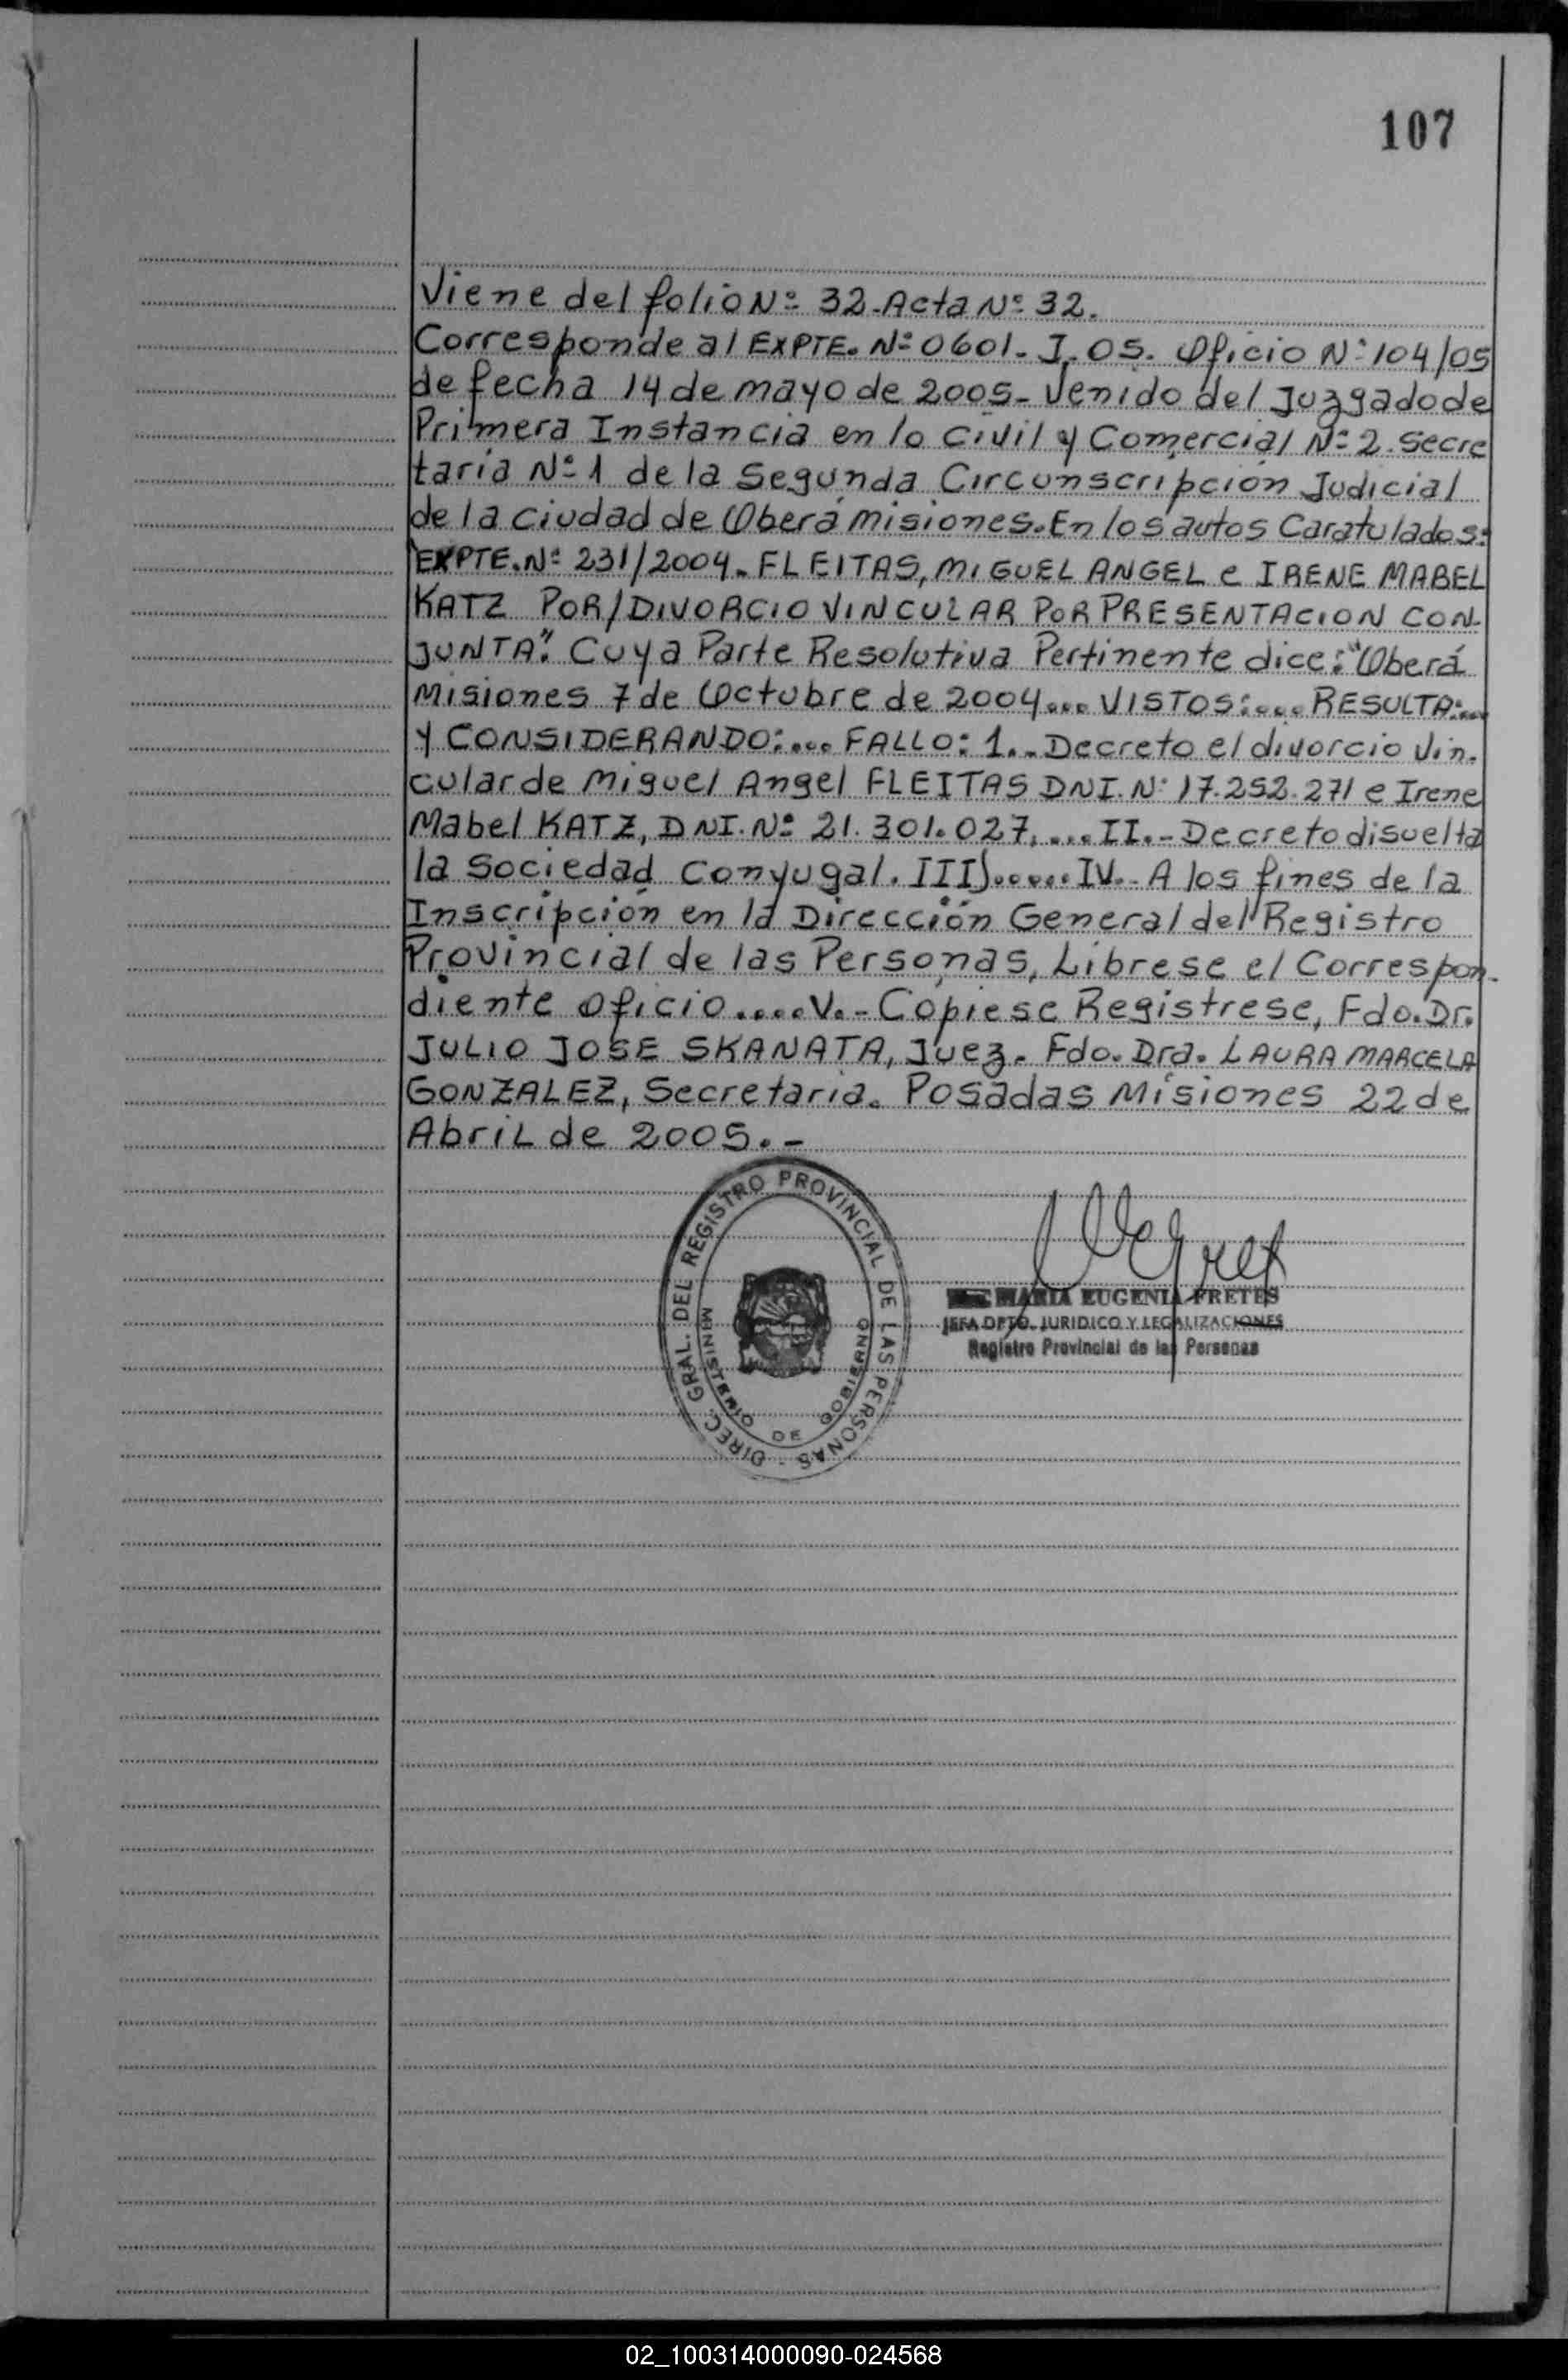 107
Viene del folio Nº 32. Acta Nº 32.
Corresponde al EXPTE. Nº 0601. J. 05. Oficio Nº 104/05
de fecha 14 de mayo de 2005- Venido del Juzgado de
Primera Instancia en lo Civil y Comercial Nº 2. Secre
taria Nº 1 de la Segunda Circunscripción Judicial
de la ciudad de Oberá misiones. En los autos Caratulados:
"EXPTE. Nº 231/2004. FLEITAS, MIGUEL ANGEL e IRENE MABEL
KATZ POR/DIVORCIO VINCULAR POR PRESENTACION CON-
JUNTA". Cuya Parte Resolutiva Pertinente dice: "Oberá
Misiones 7 de Octubre de 2004... VISTOS:.... RESULTA:...
Y CONSIDERANDO:.... FALLO: 1.- Decreto el divorcio Vin-
cular de Miguel Angel FLEITAS DNI. Nº 17.252.271 e Irene
Mabel KATZ, DNI. Nº 21.301.027, .... II.- Decreto disuelta
la Sociedad Conyugal. III)...... IV.- A los fines de la
Inscripción en la Dirección General del Registro
Provincial de las Personas, Librese el Correspon-
diente Oficio.....V.- Cópiese Registrese, Fdo. Dr.
JULIO JOSE SKANATA, Juez. Fdo. Dra. LAURA MARCELA
GONZALEZ, Secretaria. Posadas Misiones 22 de
Abril de 2005.-
DIREC. GRAL. DEL REGISTRO PROVINCIAL DE LAS PERSONAS -
MINISTERIO DE GOBIERNO
MARIA EUGENIA FRETES
JEFA DPTO. JURIDICO Y LEGALIZACIONES
Registro Provincial de las Personas
02_100314000090-024568